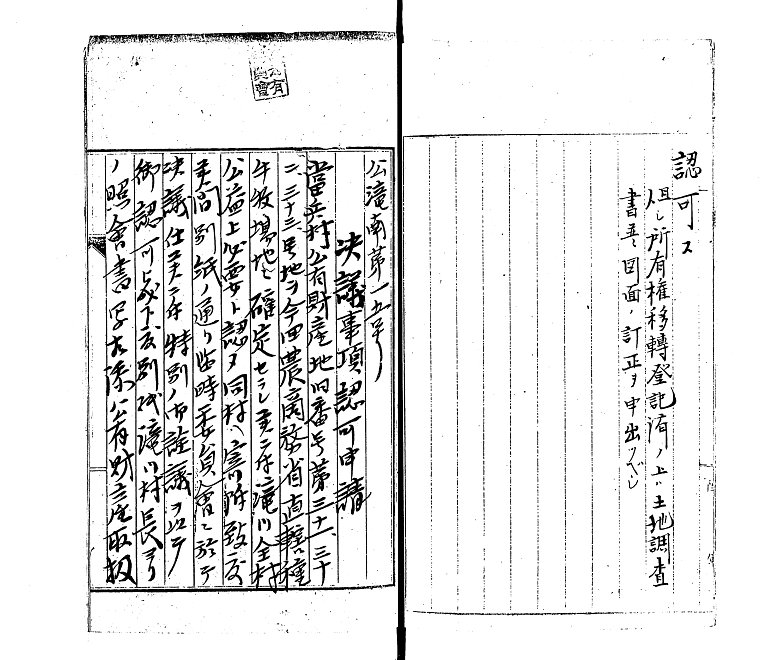 認可ス
但シ所有権移轉登記済ノ上ハ土地調査
書並ニ図面ノ訂正ヲ申出ツベシ
公滝南第一五号ノ
決議事項認可申請
當兵村公有財産地旧番号第三十一、三十
二、三十三、号地ヲ今回農商務省直轄種
牛牧場地ニ確定セラレ
公益上必要ト認メ同村ハ寄附致度
別紙ノ通リ臨時委員會ニ於テ
決議仕 特別ノ御詮議ヲ以テ
御認可 度別紙滝川村長ヨリ
ノ照會書写相添 公有財産取扱